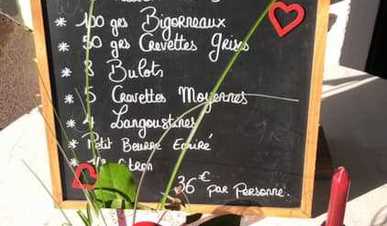 * 100 grs Bigorneaux
* 50 grs Crevettes Grises
* 8 Bulots
* 5 Crevettes Moyennes
* 4 Langoustines
* Petit Beurre Echiré
* 1/2 Citron
36€ par Personne.